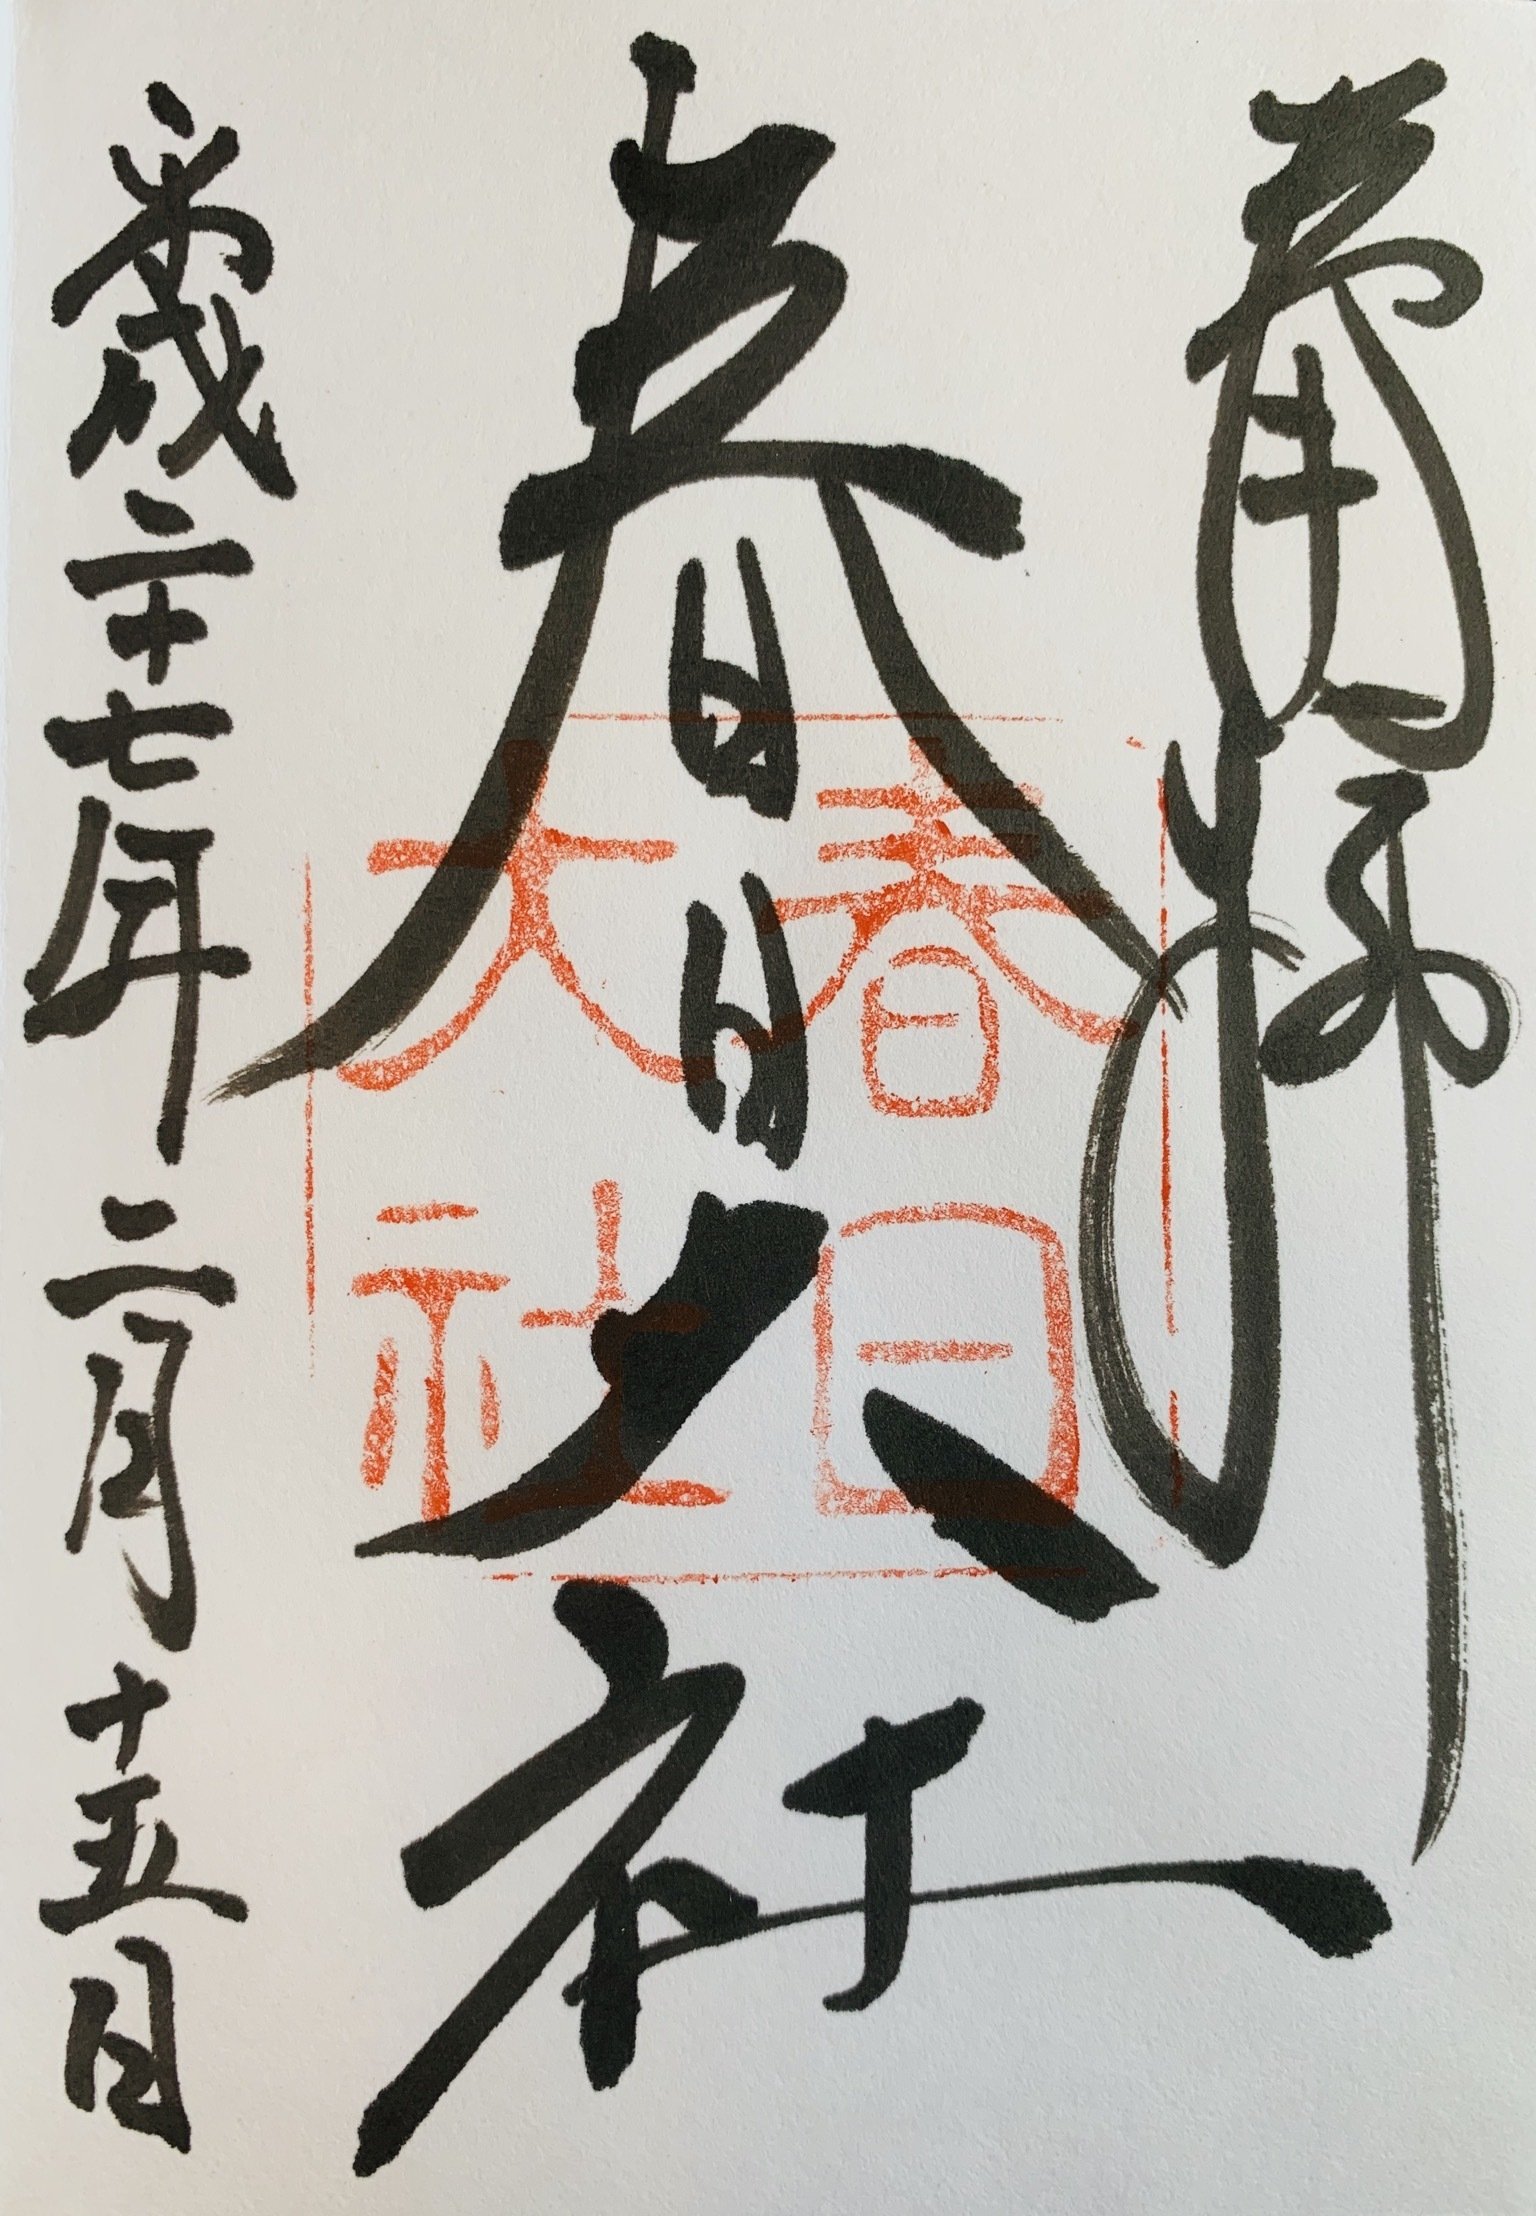 奉拝
春日大社
平成二十七年二月十五日
春日
大社